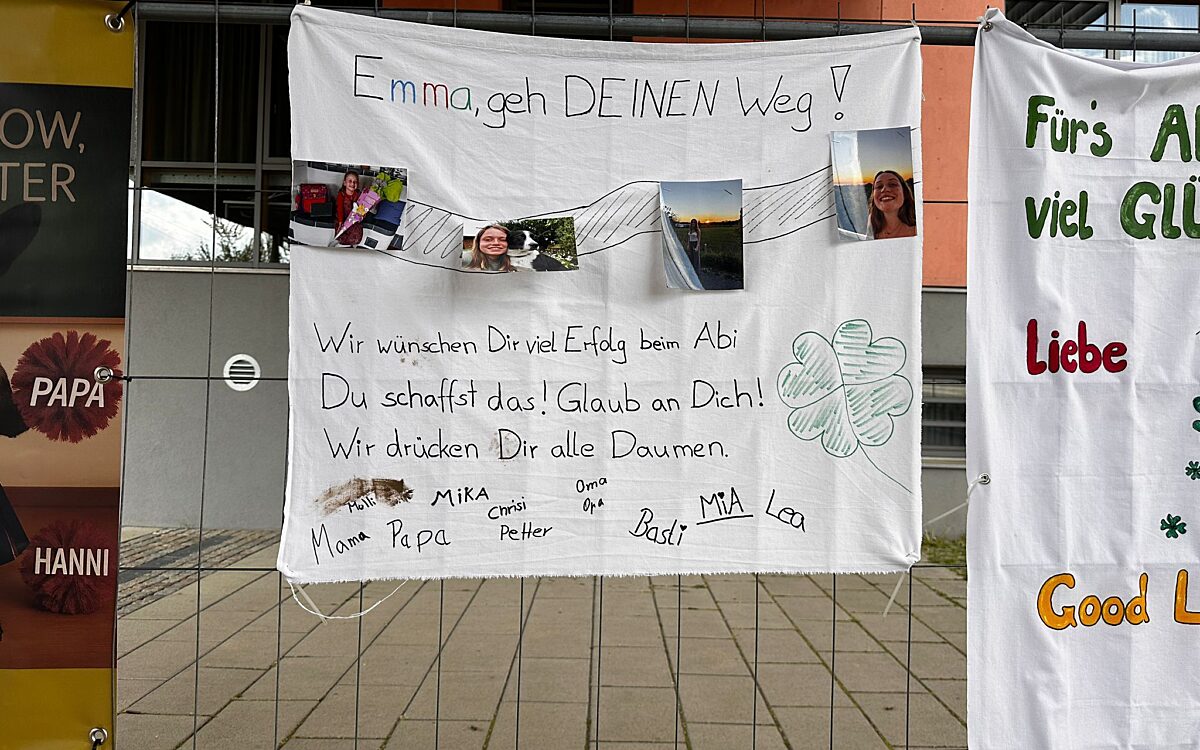 OW,
TER
PAPA
HANNI
Emma, geh DEINEN Weg!
Wir wünschen Dir viel Erfolg beim Abi
Du schaffst das! Glaub an Dich!
Wir drücken Dir alle Daumen.
Molli MiKA Chrisi Oma Opa
Mama Papa Petter Basti MiA Lea
Für's A
viel GLÜ
Liebe
Good L